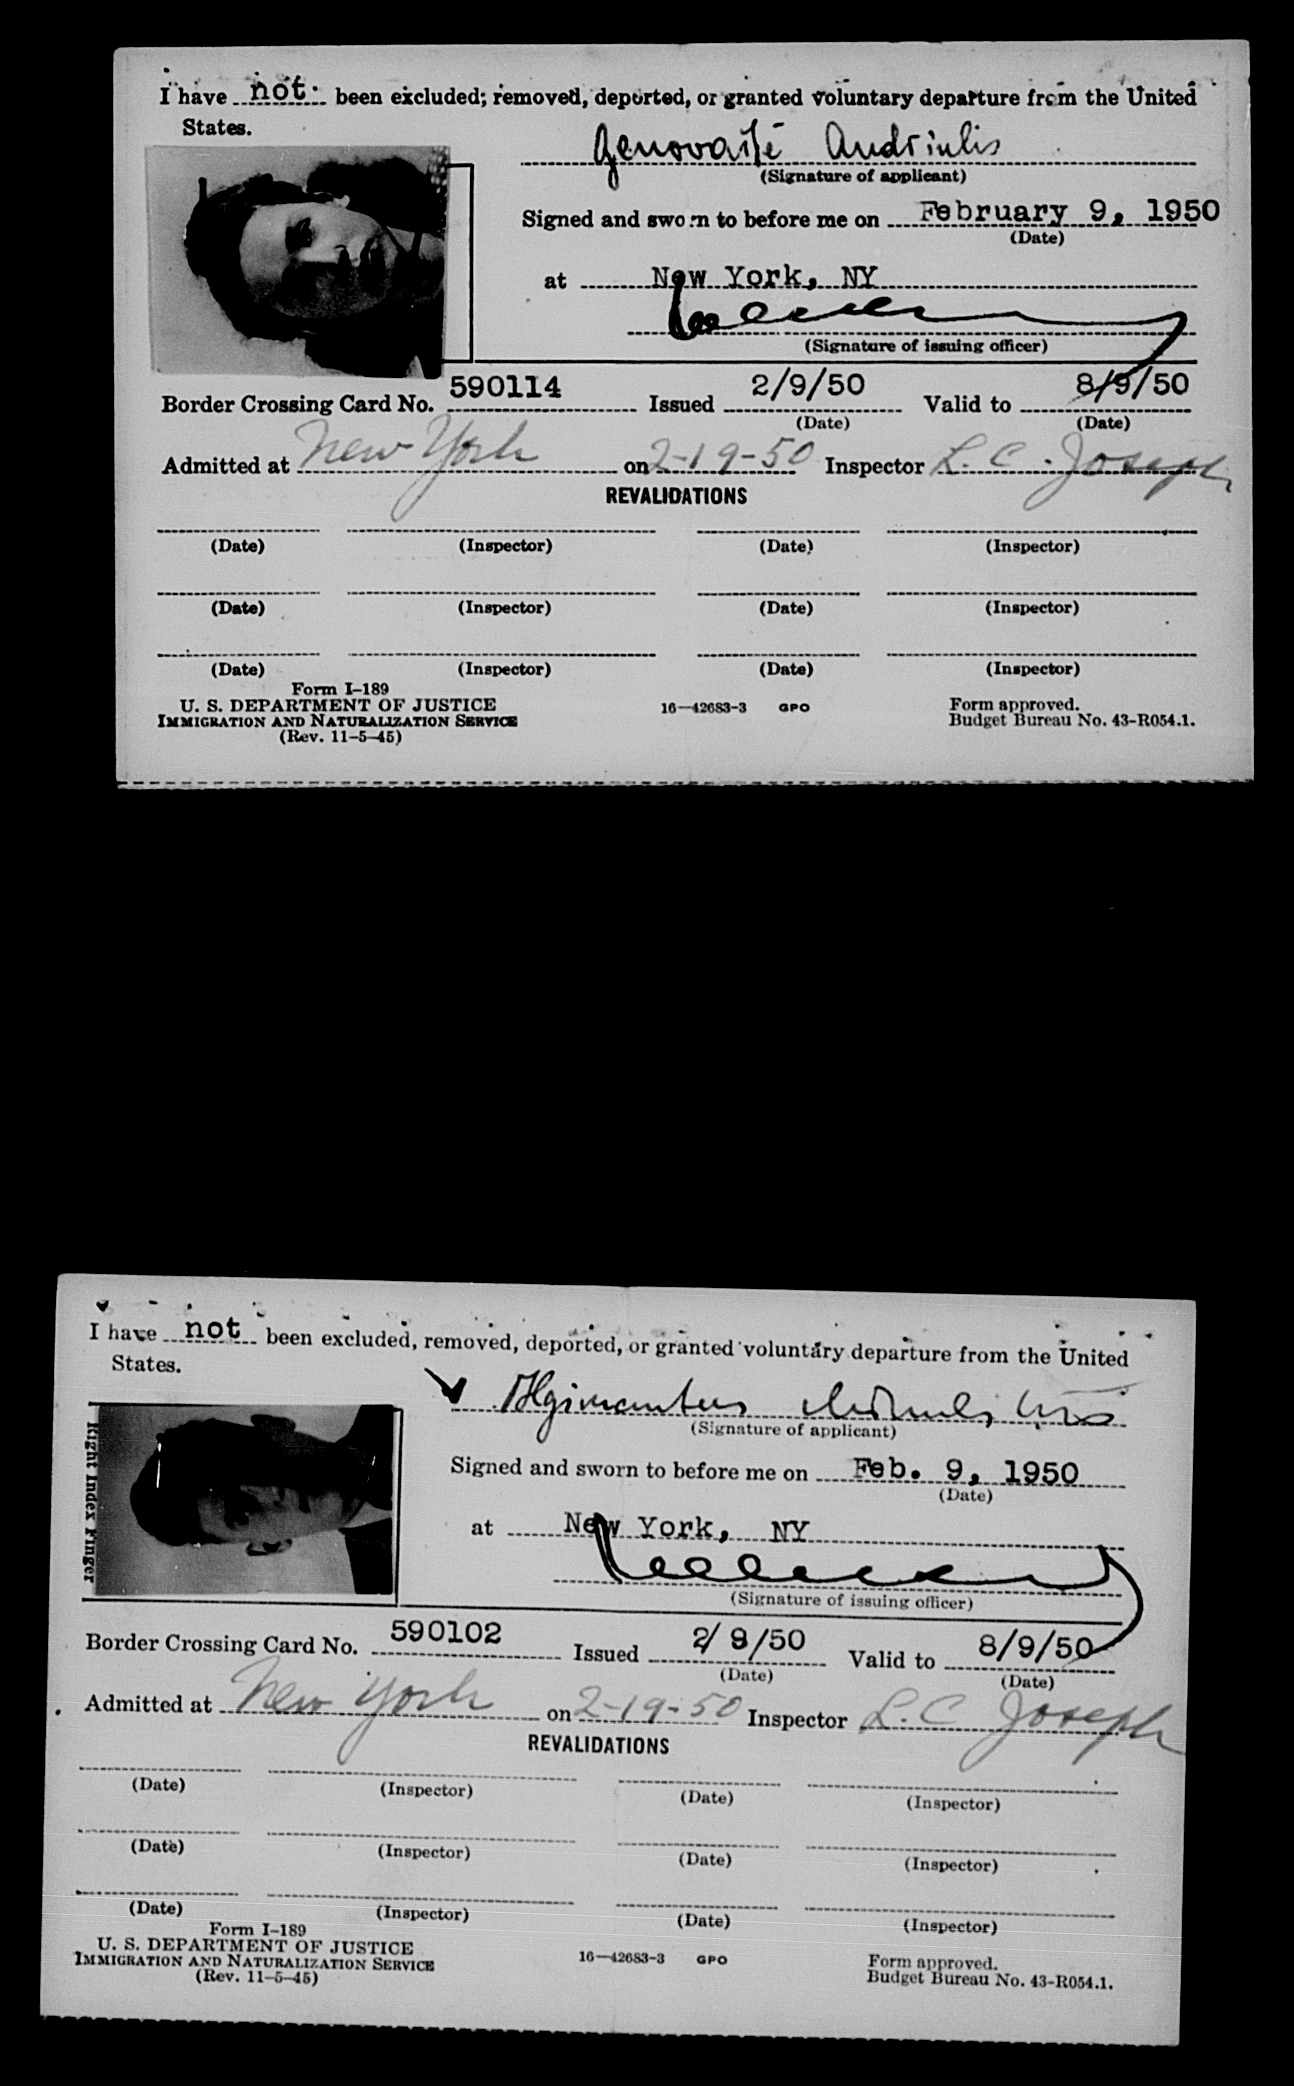 I have not been excluded, removed, deported, or granted voluntary departure from the United
States.
Genovaitė Andriulis
(Signature of applicant)
Signed and sworn to before me on February 9, 1950
(Date)
at New York, NY
(Signature of issuing officer)
Border Crossing Card No. 590114 Issued 2/9/50 Valid to 8/9/50
(Date) (Date)
Admitted at New York on 2-19-50 Inspector L. C. Joseph
REVALIDATIONS
(Date) (Inspector) (Date) (Inspector)
(Date) (Inspector) (Date) (Inspector)
(Date) (Inspector) (Date) (Inspector)
Form I-189
U. S. DEPARTMENT OF JUSTICE 16—42683-3 GPO Form approved.
IMMIGRATION AND NATURALIZATION SERVICE Budget Bureau No. 43-R054.1.
(Rev. 11-5-45)
I have not been excluded, removed, deported, or granted voluntary departure from the United
States.
Algimantas
(Signature of applicant)
Right Index Finger
Signed and sworn to before me on Feb. 9, 1950
(Date)
at New York, NY
(Signature of issuing officer)
Border Crossing Card No. 590102 Issued 2/9/50 Valid to 8/9/50
(Date) (Date)
Admitted at New York on 2-19-50 Inspector L. C Joseph
REVALIDATIONS
(Date) (Inspector) (Date) (Inspector)
(Date) (Inspector) (Date) (Inspector)
(Date) (Inspector) (Date) (Inspector)
Form I-189
U. S. DEPARTMENT OF JUSTICE 16—42683-3 GPO Form approved.
IMMIGRATION AND NATURALIZATION SERVICE Budget Bureau No. 43-R054.1.
(Rev. 11-5-45)